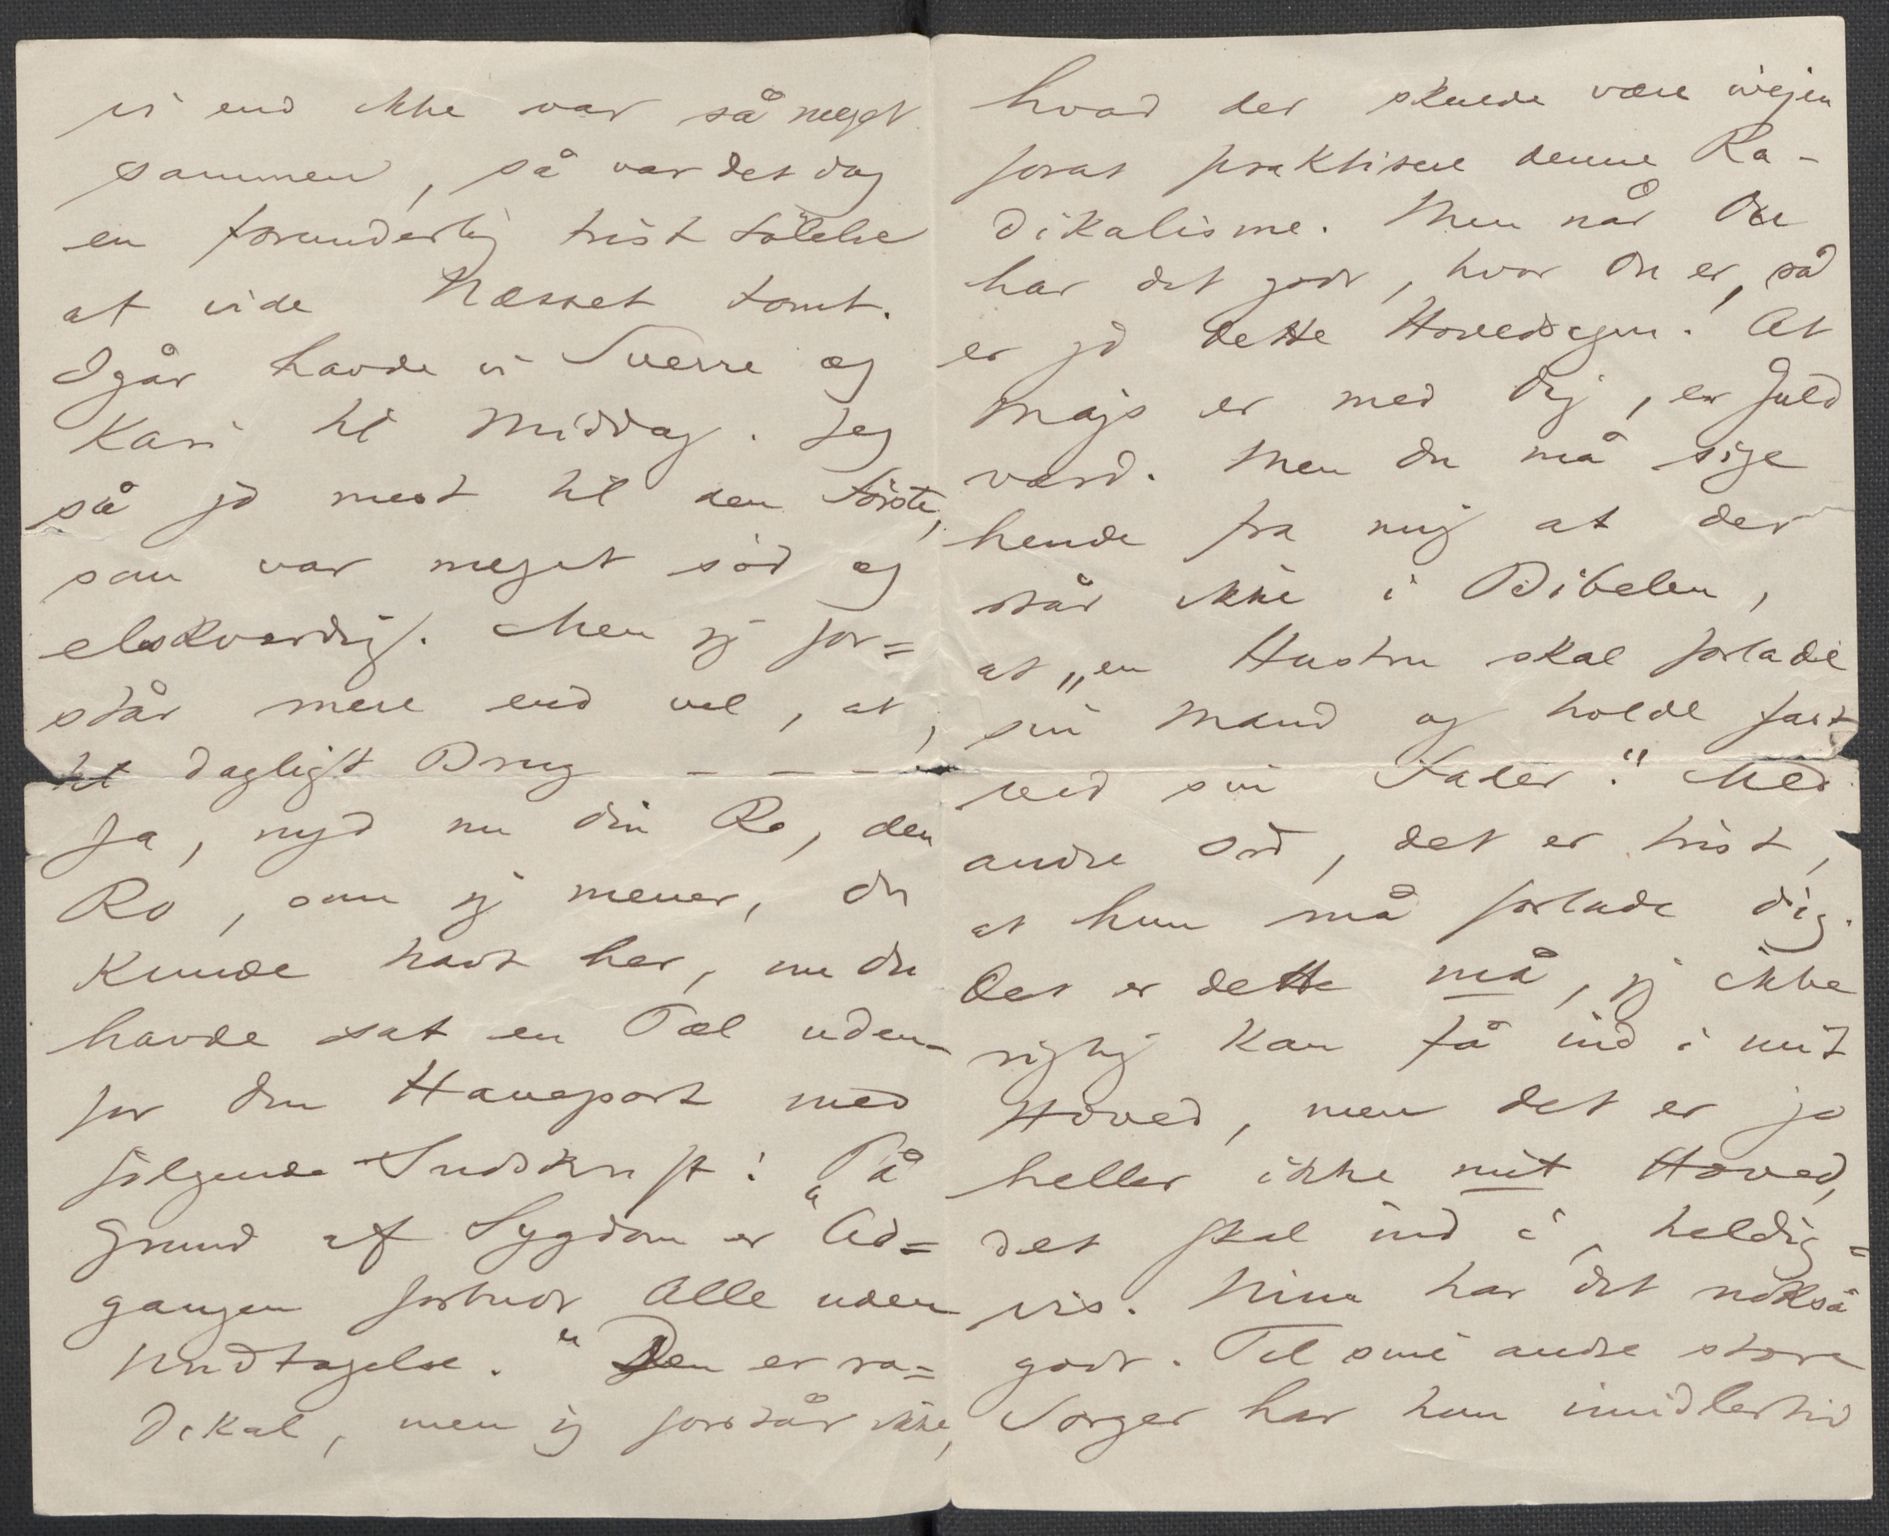 vi end ikke var så meget
sammen, så var det dog
en forunderlig trist Følelse
at vide Næsset tomt.
Igår havde vi Sverre og
Kari til Middag. Jeg
så jo mest til den første,
som var meget sød og
elskværdig. Men jeg for=
står mere end vel, at,
til dagligt Brug – – –
Ja, nyd nu din Ro, den
Ro, som jeg mener, du
kunde havt her, nu du
havde sat en Pæl uden-
for din Haveport med
følgende Indskrift: „På
Grund af Sygdom er Ad=
gangen forbudt Alle uden
Undtagelse." Den er ra=
dikal, men jeg forstår ikke,
hvad der skulde være ivejen
forat praktisere denne Ra-
dikalisme. Men når Du
har det godt, hvor Du er, så
er jo dette Hovedsagen. At
Majs er med Dig, er Guld
værd. Men du må sige
hende fra mig at der
står ikke i Bibelen,
at „en Hustru skal forlade
sin Mand og holde fast
ved sin Fader." Med
andre Ord, det er trist,
at hun må forlade dig.
Det er dette må, jeg ikke
rigtig kan få ind i mit
Hoved, men det er jo
heller ikke mit Hoved,
det skal ind i, heldig=
vis. Nina har det nokså
godt. Til sine andre store
Sorger har hun imidlertid